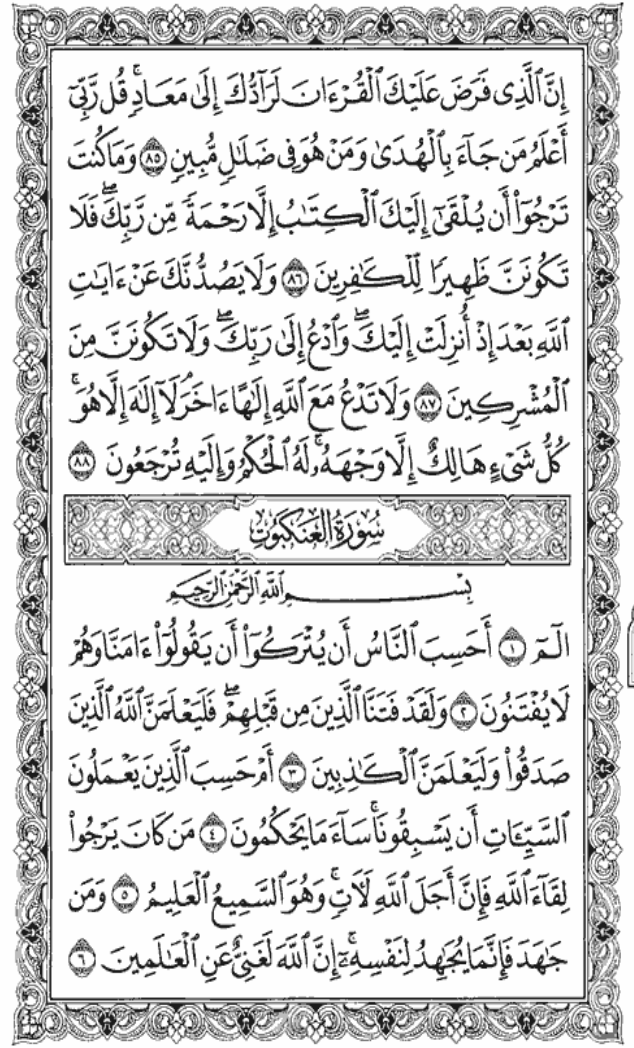 إِنَّ ٱلَّذِى فَرَضَ عَلَيْكَ ٱلْقُرْءَانَ لَرَآدُّكَ إِلَىٰ مَعَادٍۚ قُل رَّبِّىٓ
أَعْلَمُ مَن جَآءَ بِٱلْهُدَىٰ وَمَنْ هُوَ فِى ضَلَٰلٍ مُّبِينٍ ٨٥ وَمَا كُنتَ
تَرْجُوٓا۟ أَن يُلْقَىٰٓ إِلَيْكَ ٱلْكِتَٰبُ إِلَّا رَحْمَةً مِّن رَّبِّكَۖ فَلَا
تَكُونَنَّ ظَهِيرًا لِّلْكَٰفِرِينَ ٨٦ وَلَا يَصُدُّنَّكَ عَنْ ءَايَٰتِ
ٱللَّهِ بَعْدَ إِذْ أُنزِلَتْ إِلَيْكَۖ وَٱدْعُ إِلَىٰ رَبِّكَۖ وَلَا تَكُونَنَّ مِنَ
ٱلْمُشْرِكِينَ ٨٧ وَلَا تَدْعُ مَعَ ٱللَّهِ إِلَٰهًا ءَاخَرَۘ لَآ إِلَٰهَ إِلَّا هُوَۚ
كُلُّ شَىْءٍ هَالِكٌ إِلَّا وَجْهَهُۥۚ لَهُ ٱلْحُكْمُ وَإِلَيْهِ تُرْجَعُونَ ٨٨
سُورَةُ العَنكَبُوتِ
بِسْمِ ٱللَّهِ ٱلرَّحْمَٰنِ ٱلرَّحِيمِ
الٓمٓ ١ أَحَسِبَ ٱلنَّاسُ أَن يُتْرَكُوٓا۟ أَن يَقُولُوٓا۟ ءَامَنَّا وَهُمْ
لَا يُفْتَنُونَ ٢ وَلَقَدْ فَتَنَّا ٱلَّذِينَ مِن قَبْلِهِمْۖ فَلَيَعْلَمَنَّ ٱللَّهُ ٱلَّذِينَ
صَدَقُوا۟ وَلَيَعْلَمَنَّ ٱلْكَٰذِبِينَ ٣ أَمْ حَسِبَ ٱلَّذِينَ يَعْمَلُونَ
ٱلسَّيِّـَٔاتِ أَن يَسْبِقُونَاۚ سَآءَ مَا يَحْكُمُونَ ٤ مَن كَانَ يَرْجُوا۟
لِقَآءَ ٱللَّهِ فَإِنَّ أَجَلَ ٱللَّهِ لَـَٔاتٍۚ وَهُوَ ٱلسَّمِيعُ ٱلْعَلِيمُ ٥ وَمَن
جَٰهَدَ فَإِنَّمَا يُجَٰهِدُ لِنَفْسِهِۦٓۚ إِنَّ ٱللَّهَ لَغَنِىٌّ عَنِ ٱلْعَٰلَمِينَ ٦